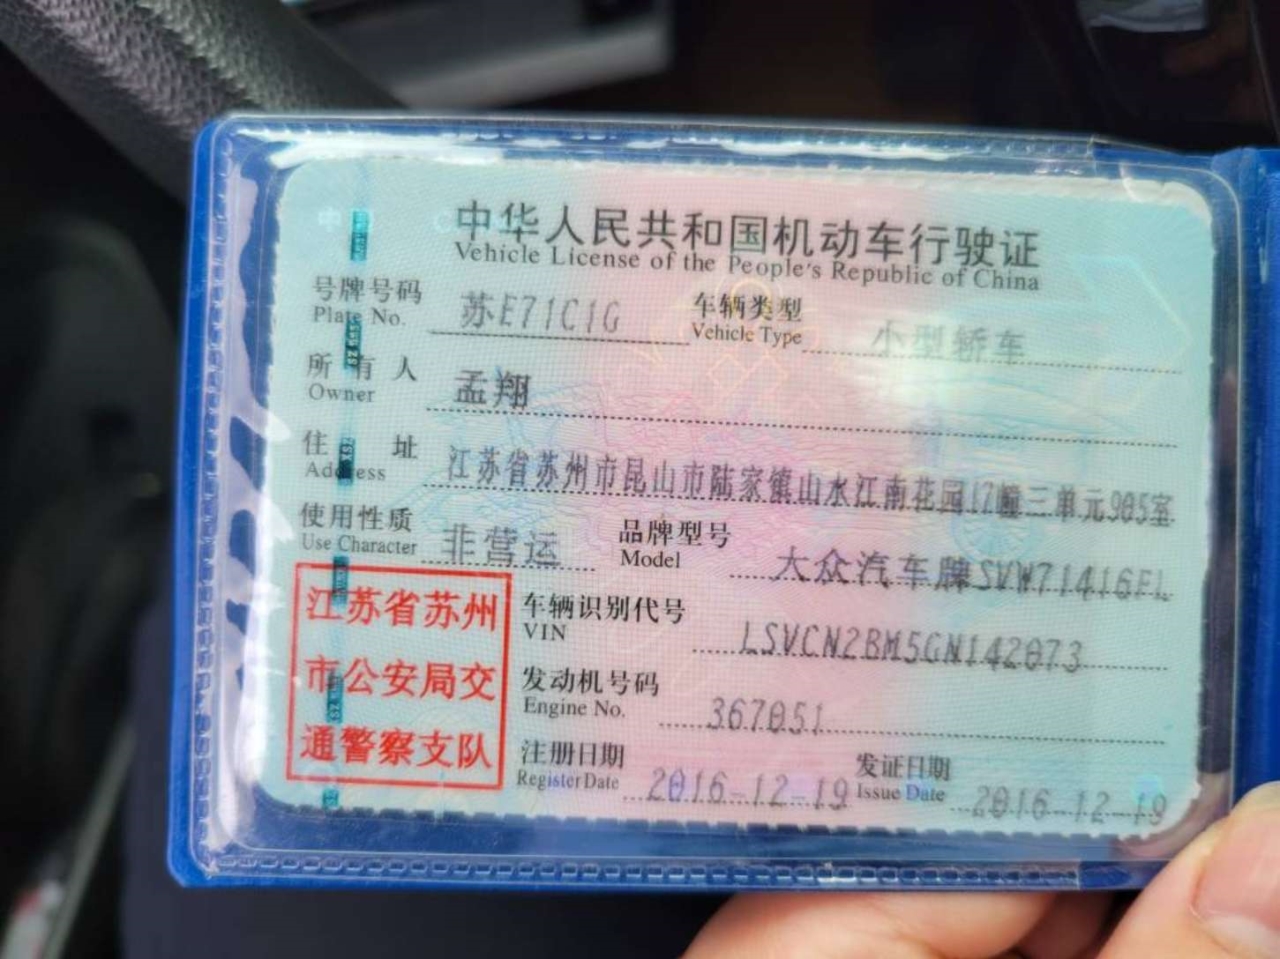 中华人民共和国机动车行驶证
Vehicle License of the People's Republic of China
号牌号码 苏E71C1G 车辆类型 小型轿车
Plate No. Vehicle Type
所有人 孟翔
Owner
住址 江苏省苏州市昆山市陆家镇山水江南花园17幢三单元905室
Address
使用性质 非营运 品牌型号 大众汽车牌SVW71416FL
Use Character Model
江苏省苏州
市公安局交
通警察支队
车辆识别代号 LSVCN2BM5GN142073
VIN
发动机号码 367051
Engine No.
注册日期 2016-12-19 发证日期 2016-12-19
Register Date Issue Date